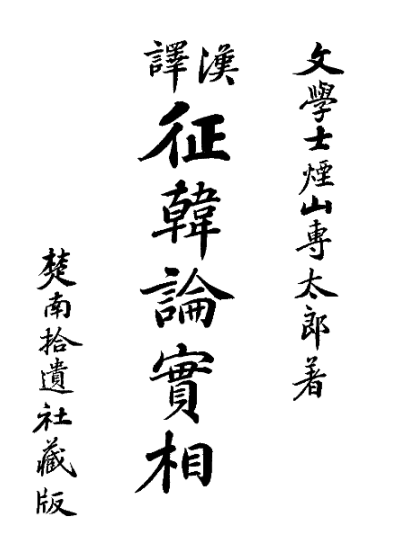 文學士煙山專太郎著
漢譯
征韓論實相
楚南拾遺社藏版